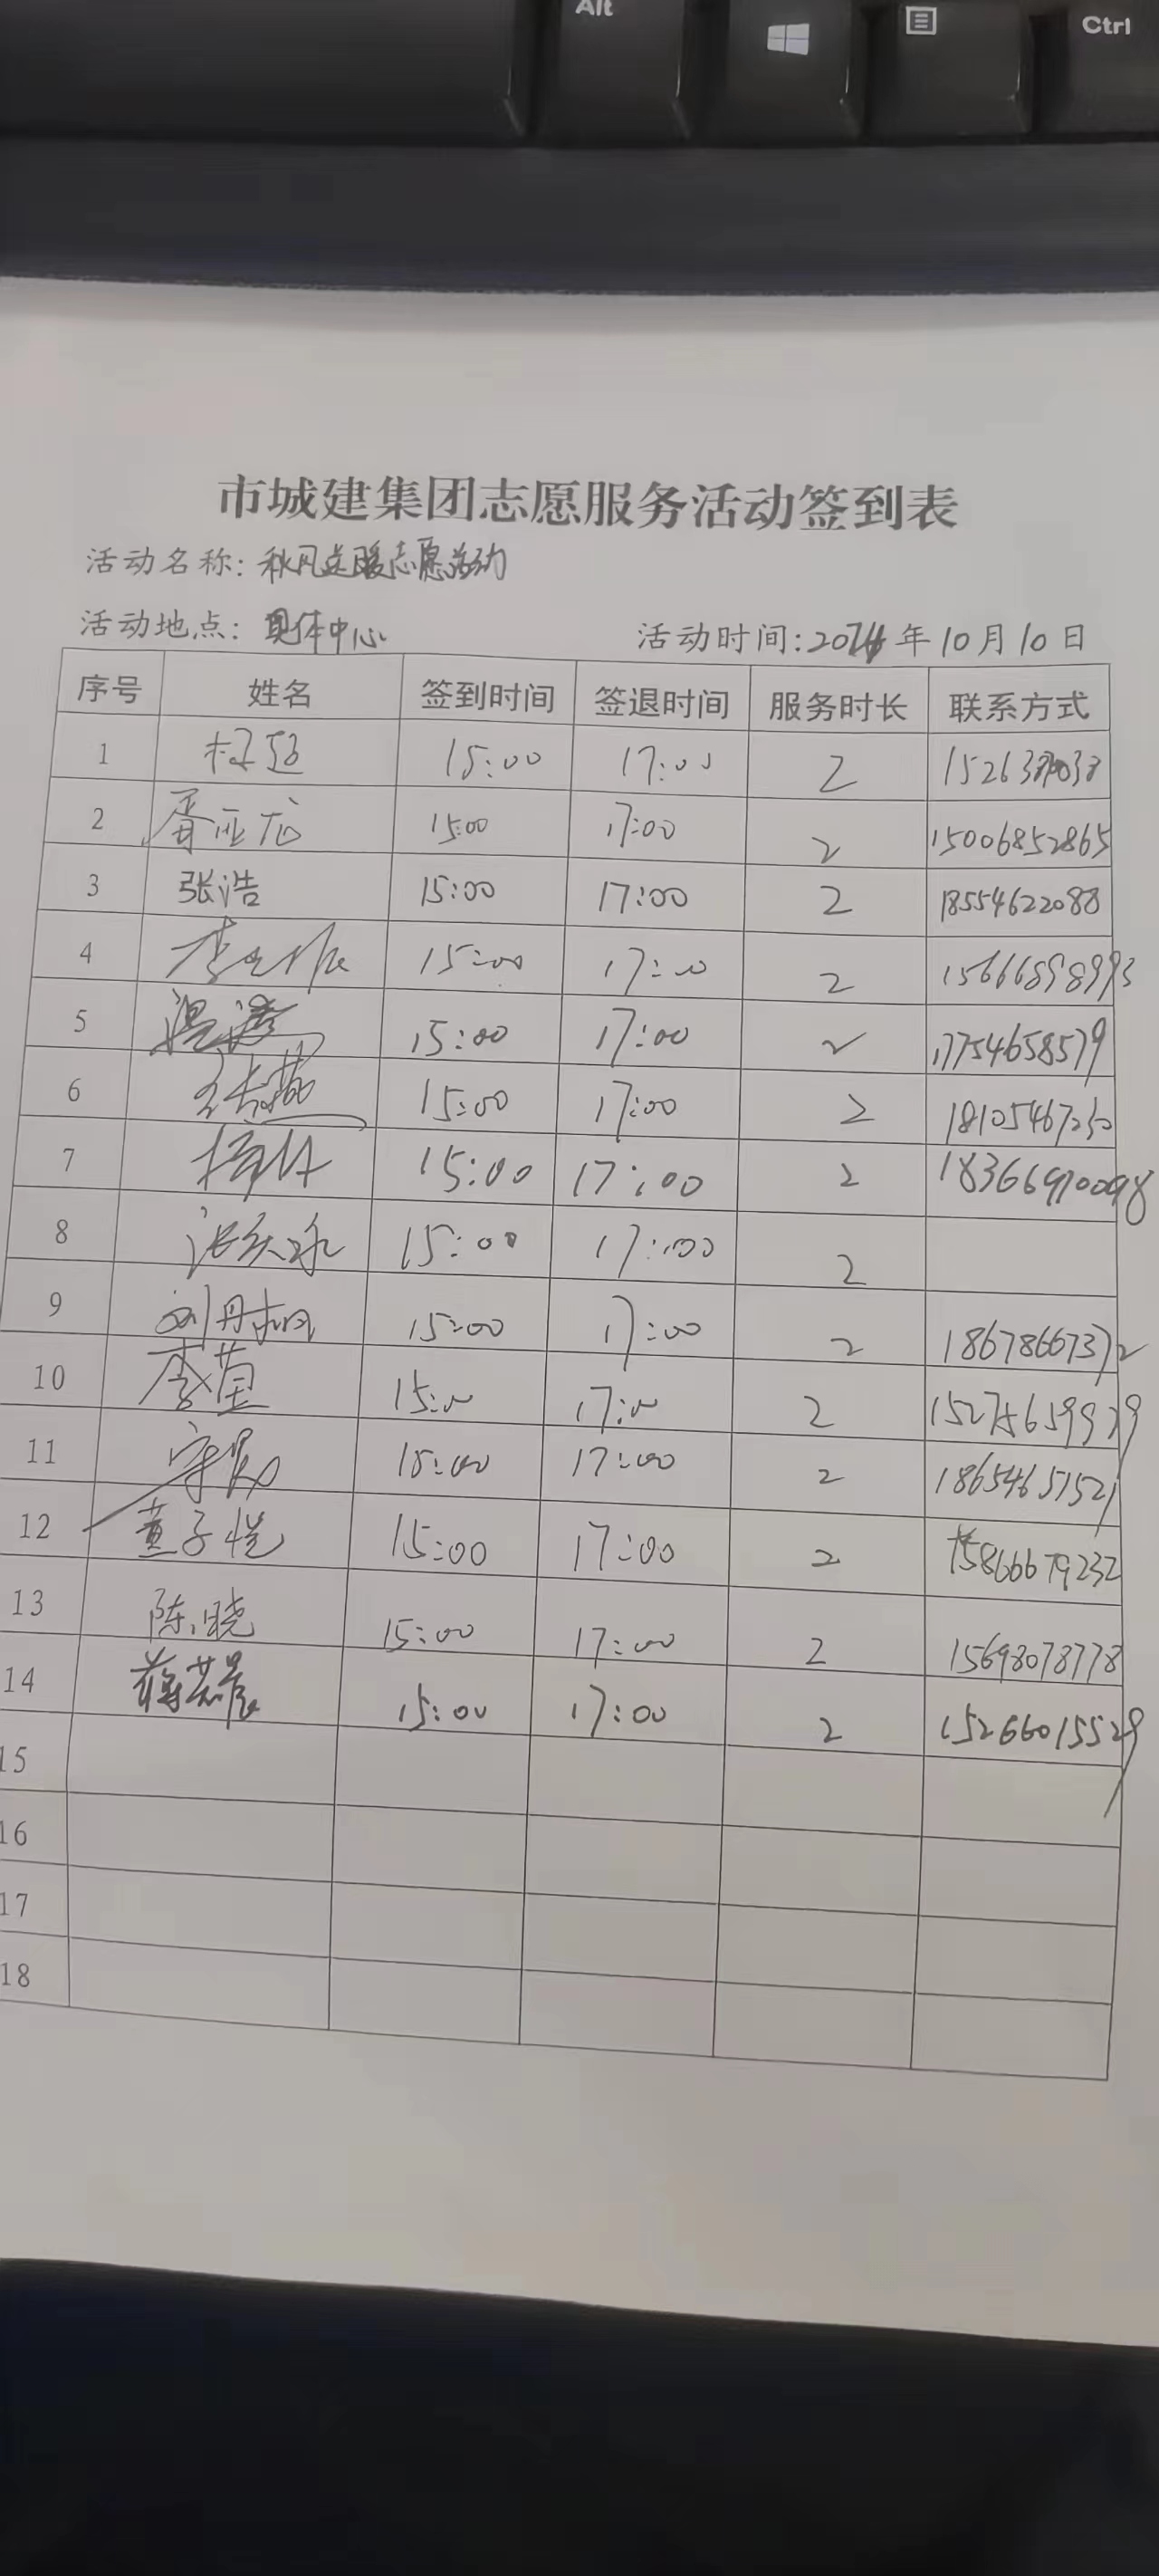 Alt
Ctrl
市城建集团志愿服务活动签到表
活动名称: 秋风送暖志愿活动
活动地点: 奥体中心 活动时间: 年10月10日
序号 姓名 签到时间 签退时间 服务时长 联系方式
1 15:00 17:00 2
2 胥亚龙 15:00 17:00 2 15006852865
3 张浩 15:00 17:00 2 18554622088
4 15:00 17:00 2 15666898993
5 15:00 17:00 2 17754658579
6 15:00 17:00 2
7 15:00 17:00 2
8 15:00 17:00 2
9 刘丹桐 15:00 17:00 2 18678667372
10 李萱 15:00 17:00 2
11 15:00 17:00 2 18654651521
12 黄子恺 15:00 17:00 2 15866679232
13 陈晓 15:00 17:00 2 15698078778
14 蒋若晨 15:00 17:00 2 15266015529
15
16
17
18